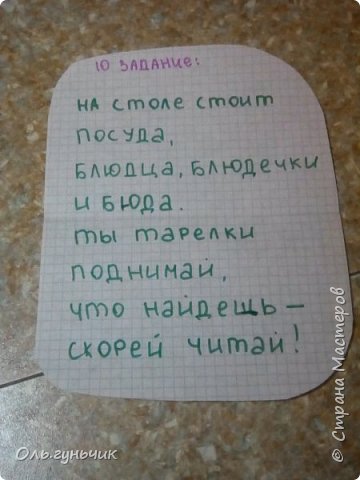 10 ЗАДАНИЕ:
НА СТОЛЕ СТОИТ
ПОСУДА,
БЛЮДЦА, БЛЮДЕЧКИ
И БЮДА.
ТЫ ТАРЕЛКИ
ПОДНИМАЙ,
ЧТО НАЙДЕШЬ –
СКОРЕЙ ЧИТАЙ!
Оль.гуньчик
© Страна Мастеров